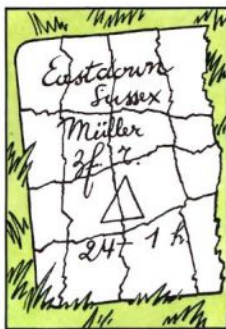 Eastdown
Sussex
Müller
3f. r.
24 – 1 h.